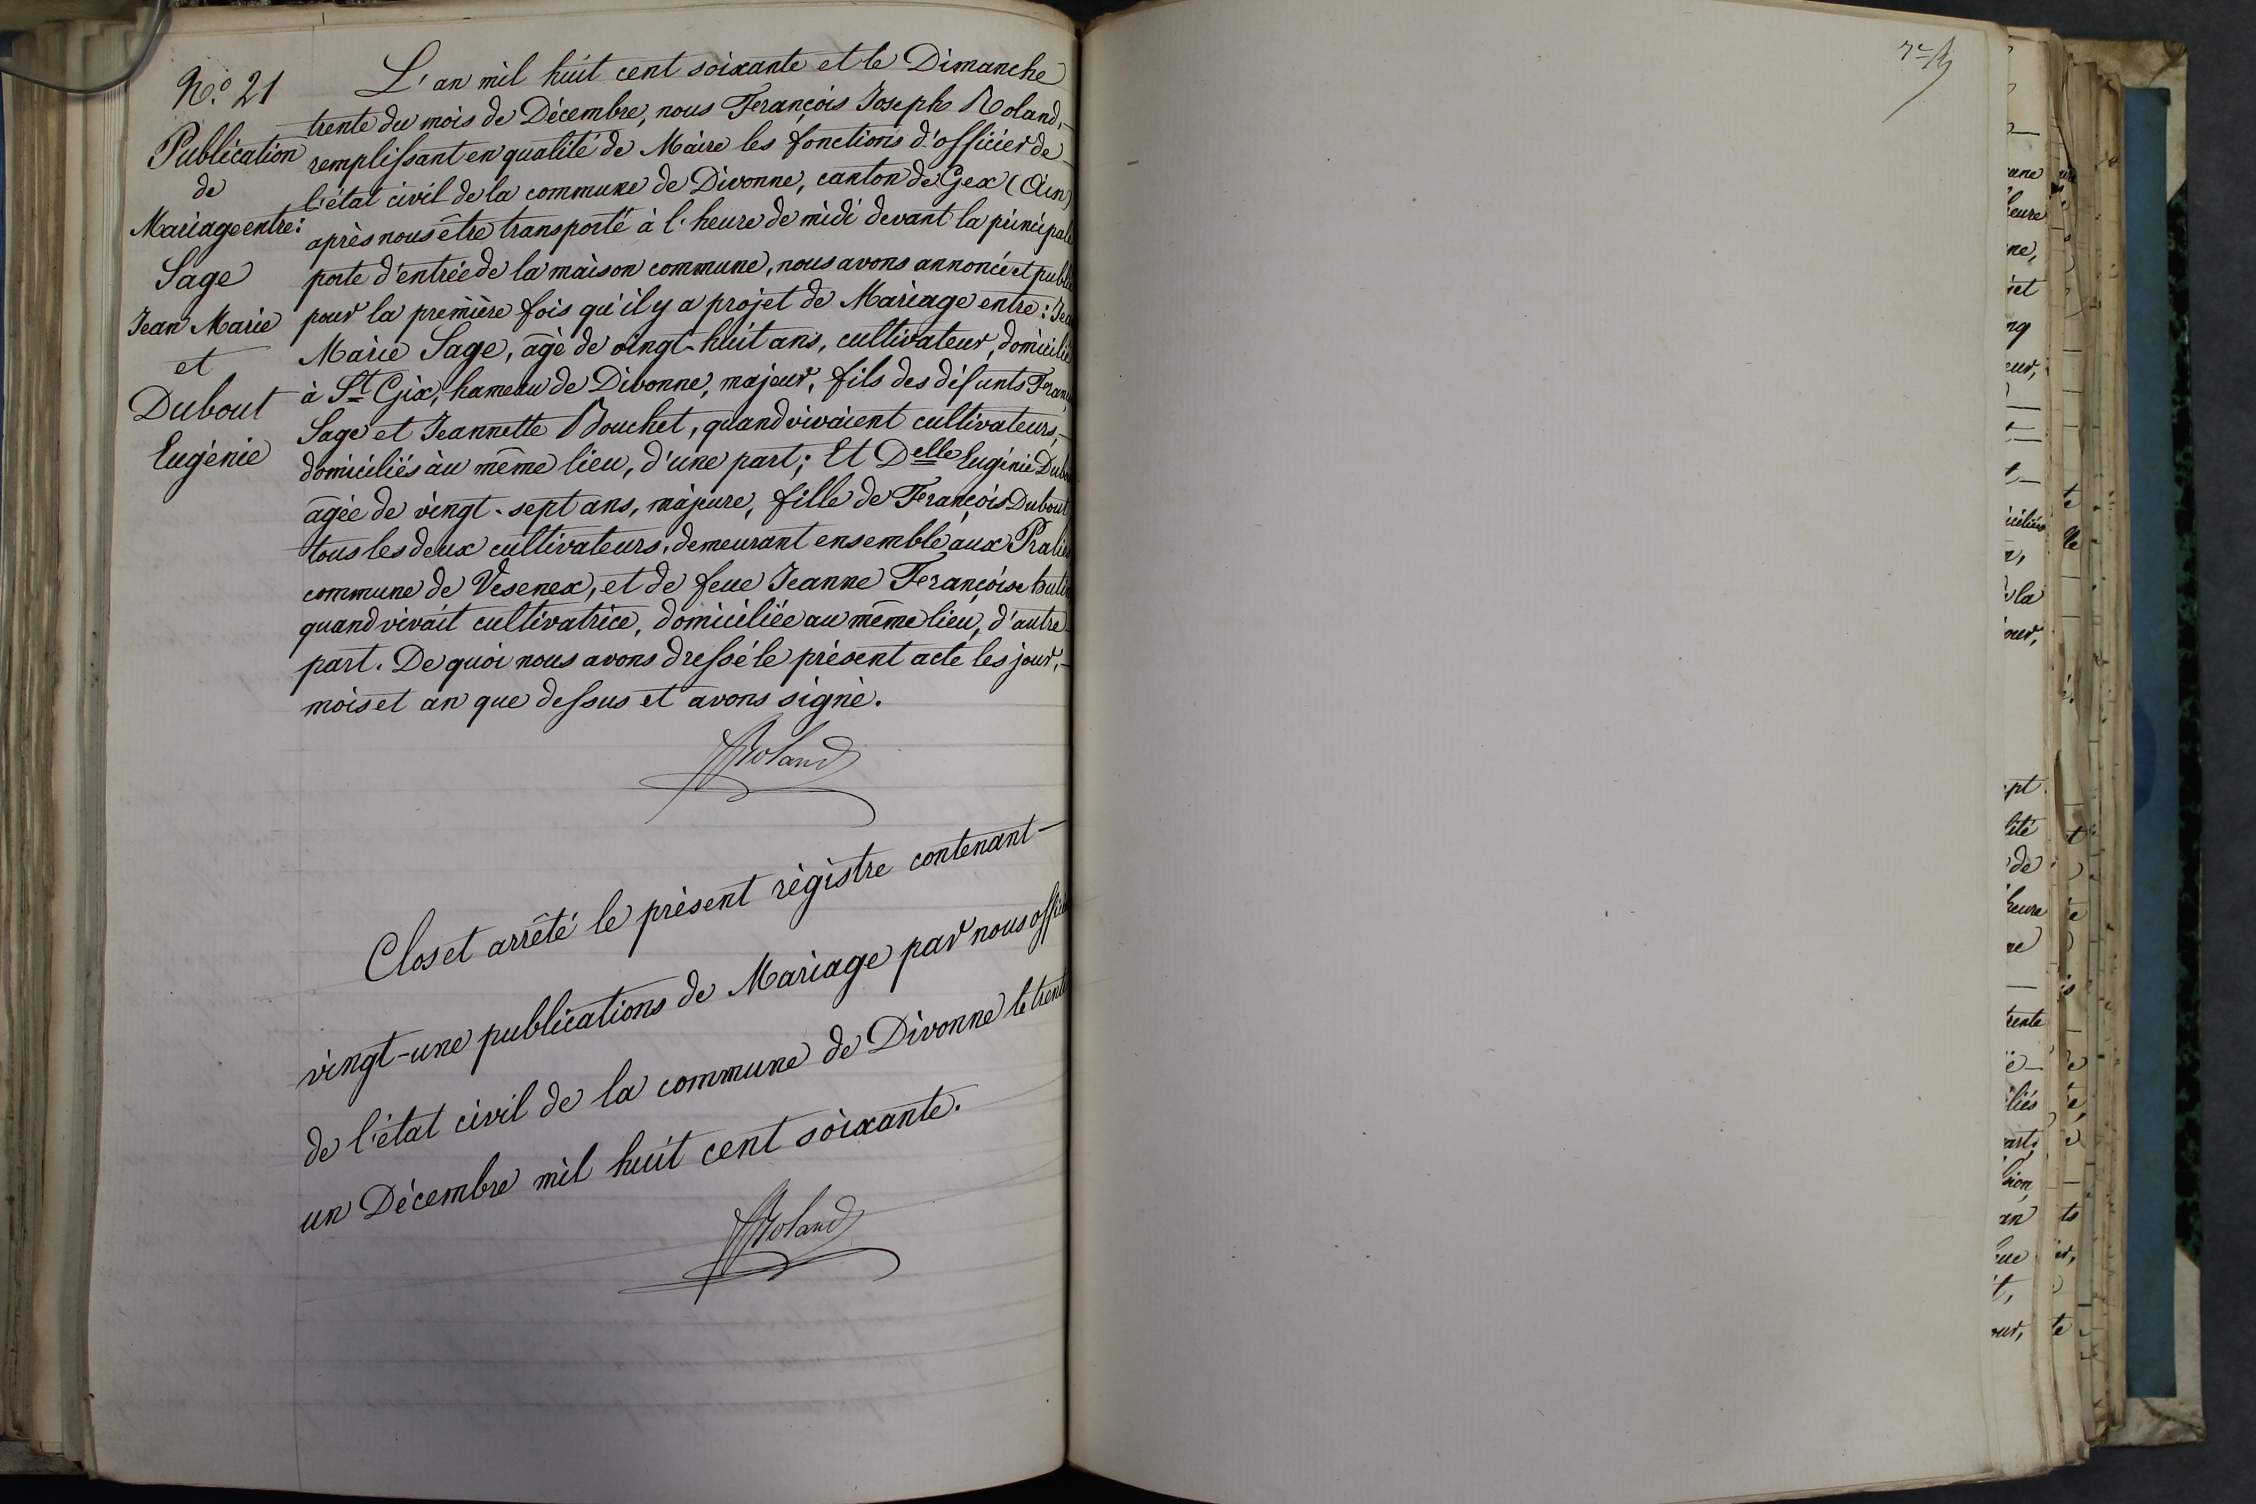 N.o 21
Publication
de
Mariage entre:
Sage
Jean Marie
et
Dubout
Eugénie
L'an mil huit cent soixante et le Dimanche
trente du mois de Décembre, nous François Joseph Roland,
remplissant en qualité de Maire les fonctions d'officier de
l'état civil de la commune de Divonne, canton de Gex (Ain)
après nous être transporté à l'heure de midi devant la principale
porte d'entrée de la maison commune, nous avons annoncé et
pour la première fois qu'il y a projet de Mariage entre:
Marie Sage, âgé de vingt-huit ans, cultivateur, domicilié
à St Gix, hameau de Divonne, majeur, fils des défunts
Sage et Jeannette Bouchet, quand vivaient cultivateurs,
domiciliés au même lieu, d'une part; Et Delle Eugénie
âgée de vingt-sept ans, majeure, fille de François Dubout
tous les deux cultivateurs, demeurant ensemble aux
commune de Vesenex, et de feue Jeanne Françoise
quand vivait cultivatrice, domiciliée au même lieu, d'autre
part. De quoi nous avons dressé le présent acte les jour,
mois et an que dessus et avons signé.
Roland
Clos et arrêté le présent régistre contenant
vingt-une publications de Mariage par nous
de l'état civil de la commune de Divonne le trente
un Décembre mil huit cent soixante.
Roland